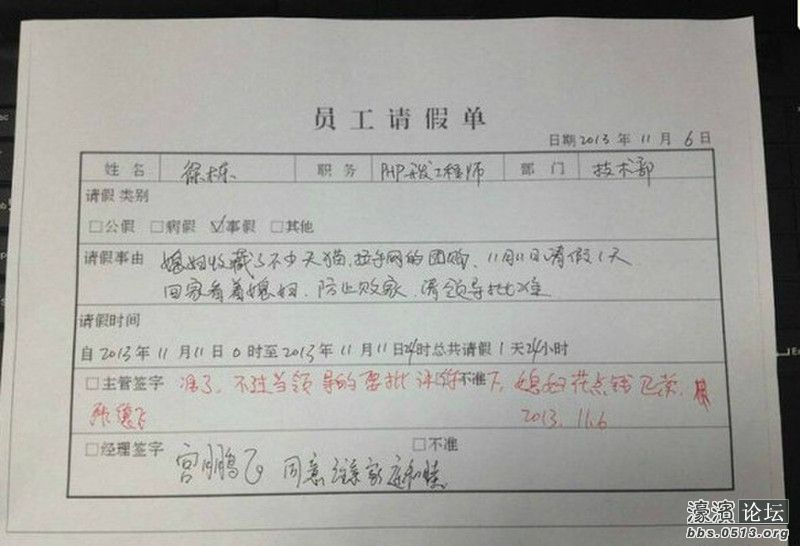 员工请假单
日期 2013 年 11 月 6 日
姓名 徐栋 职务 PHP开发工程师 部门 技术部
请假 类别
□公假 □病假 ☑事假 □其他
请假事由 媳妇收藏了不少天猫,拉手网的团购,11月11日请假1天
回家看着媳妇,防止败家,请领导批准
请假时间
自 2013 年 11 月 11 日 0 时至 2013 年 11 月 11 日 24 时总共请假 1 天 24 小时
□主管签字 准了,不过当领导的要批评 □不准 下,媳妇花点钱
2013.11.6
□经理签字 □不准
宫鹏飞 同意 家庭和睦
濠滨论坛
bbs.0513.org